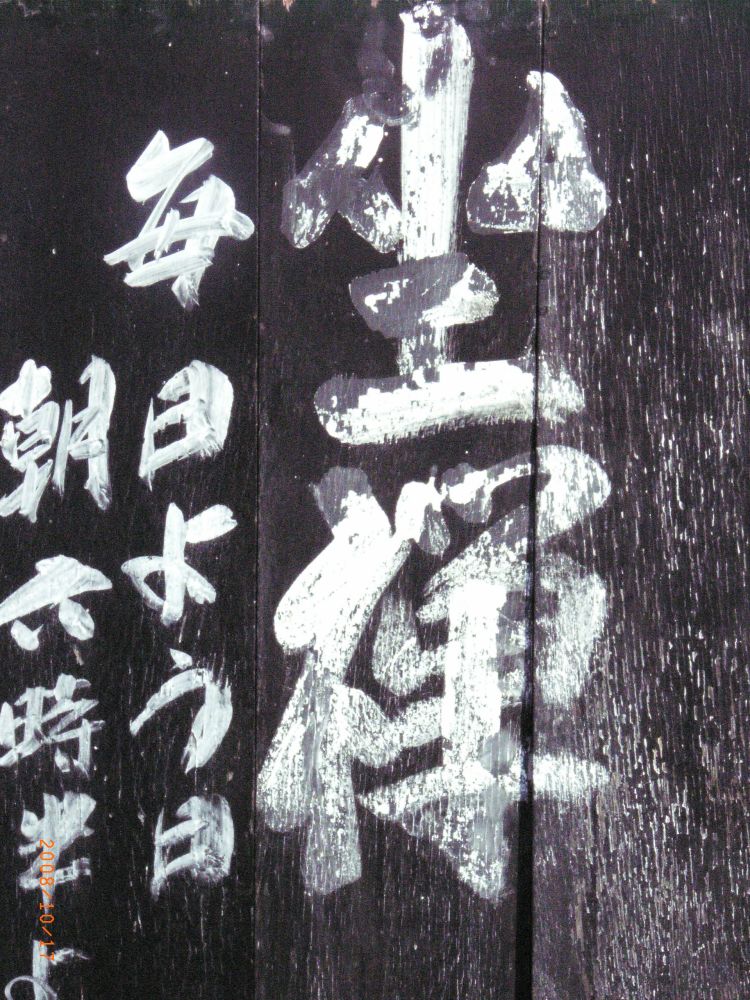 坐禅
毎日よう日
朝六時半よ
2008/10/17